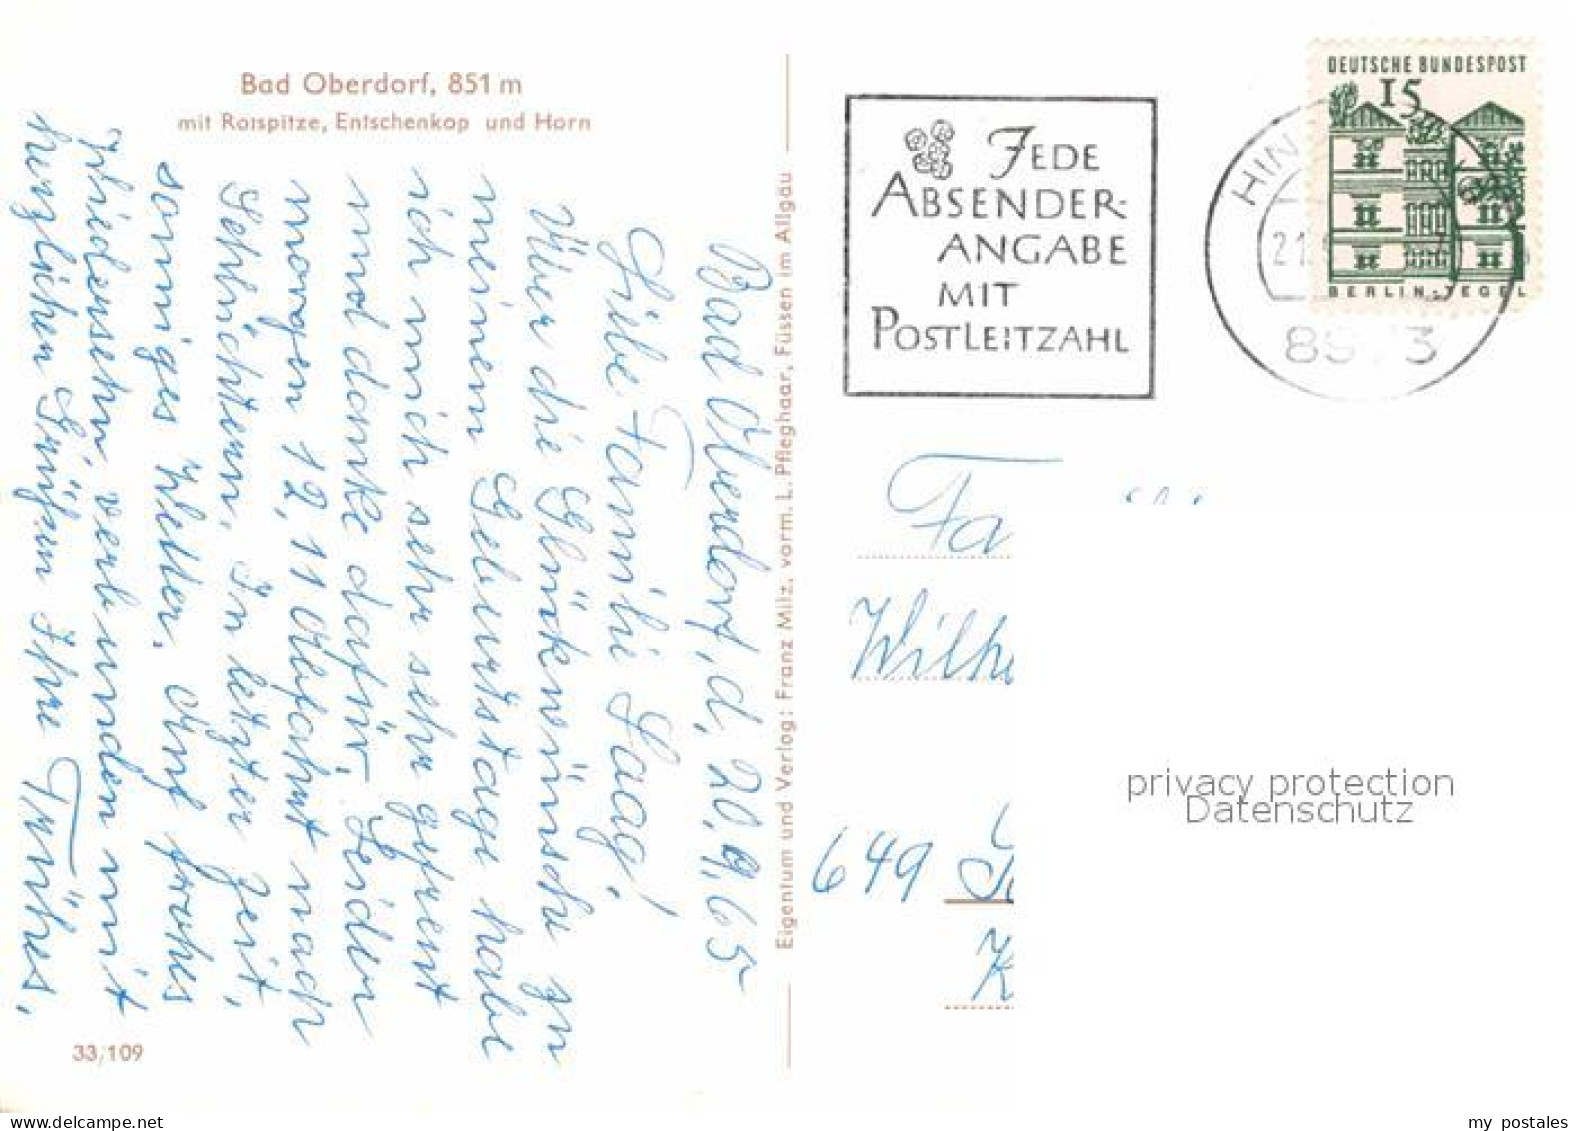 Bad Oberdorf, 851 m
mit Rotspitze, Entschenkop und Horn
Bad Oberdorf, d. 20.9.65
Liebe Familie Laag!
Über die Glückwünsche zu
meinem Geburtstage habe
ich mich sehr sehr gefreut
und danke dafür. Leider
morgen 12,11 Abfahrt nach
Schlüchtern. In letzter Zeit,
sonniges Wetter. Auf frohes
Wiedersehn, verbunden mit
herzlichen Grüßen Ihre
33/109
Eigentum und Verlag: Franz Milz, vorm. L. Pfleghaar, Füssen im Allgäu
JEDE
ABSENDER-
ANGABE
MIT
POSTLEITZAHL
DEUTSCHE BUNDESPOST
15
BERLIN-TEGEL
HIN
21.
Fa
Wilhe
649
K
privacy protection
Datenschutz
my postales